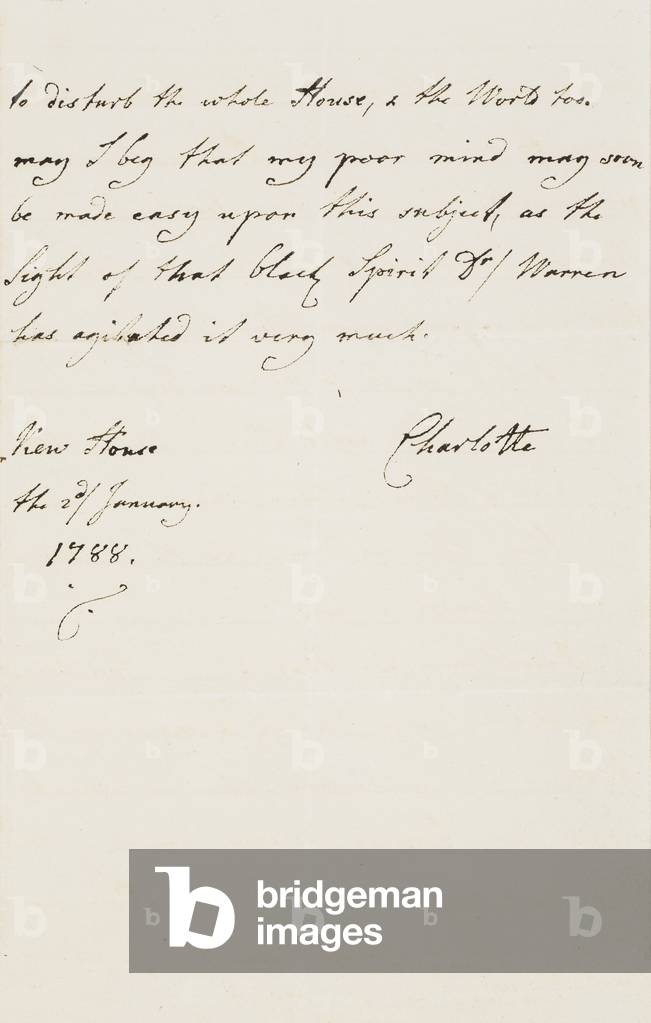 to disturb the whole House, & the World too.
may I beg that my poor mind may soon
be made easy upon this subject, as the
Sight of that black Spirit Dr/ Warren
has agitated it very much.
Charlotte
Kew House
the 2d/ January.
1788.
b bridgeman
images